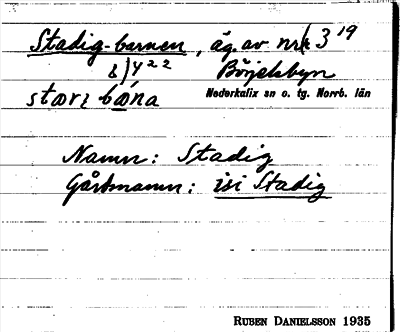 Stadig-barnen, äg. av nr 3¹⁹
8)4²² Börjelsbyn
stari bóna Nederkalix sn o. tg. Norrb. län
Namn: Stadig
Gårdsnamn: isi Stadig
RUBEN DANIELSSON 1935